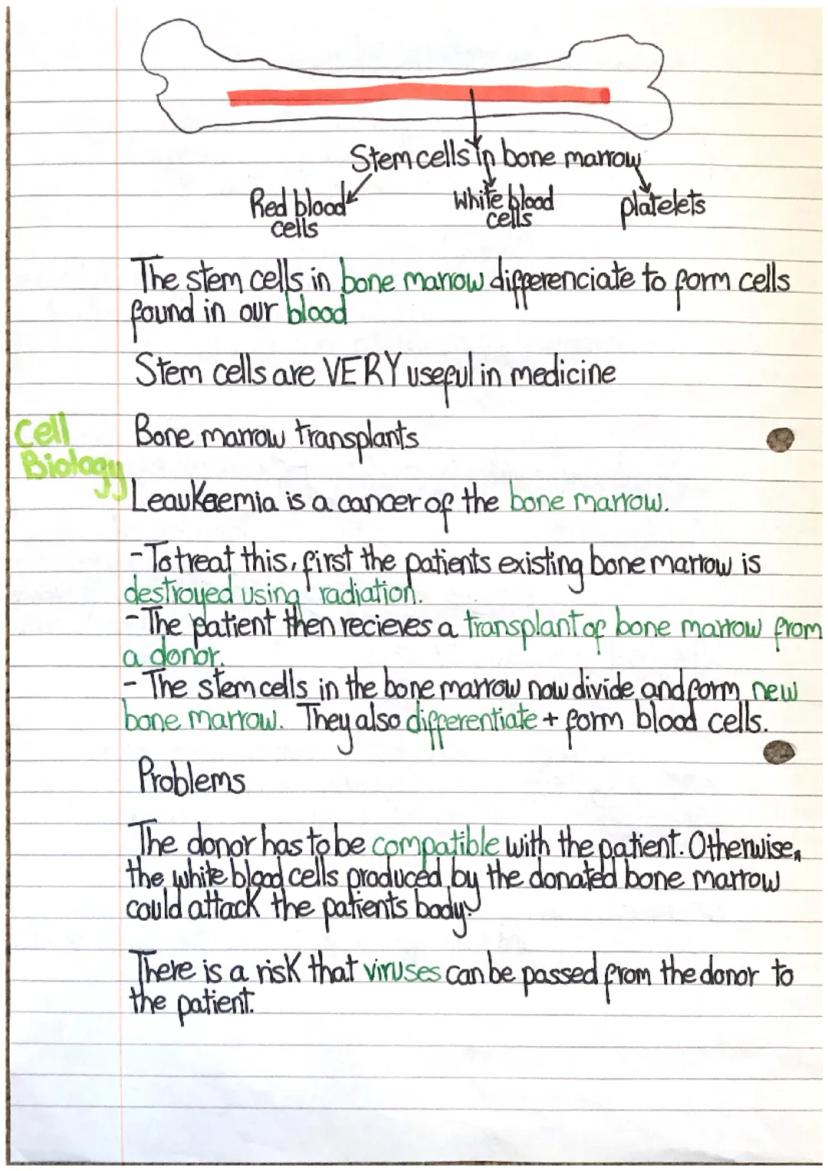 Stem cells in bone marrow
Red blood
cells
White blood
cells
platelets
The stem cells in bone marrow differenciate to form cells
found in our blood
Stem cells are VERY useful in medicine
Cell
Biology
Bone marrow transplants
Leaukaemia is a cancer of the bone marrow.
- To treat this, first the patients existing bone marrow is
destroyed using radiation.
- The patient then recieves a transplant of bone marrow from
a donor.
- The stem cells in the bone marrow now divide and form new
bone marrow. They also differentiate + form blood cells.
Problems
The donor has to be compatible with the patient. Otherwise,
the white blood cells produced by the donated bone marrow
could attack the patients body.
There is a risk that viruses can be passed from the donor to
the patient.